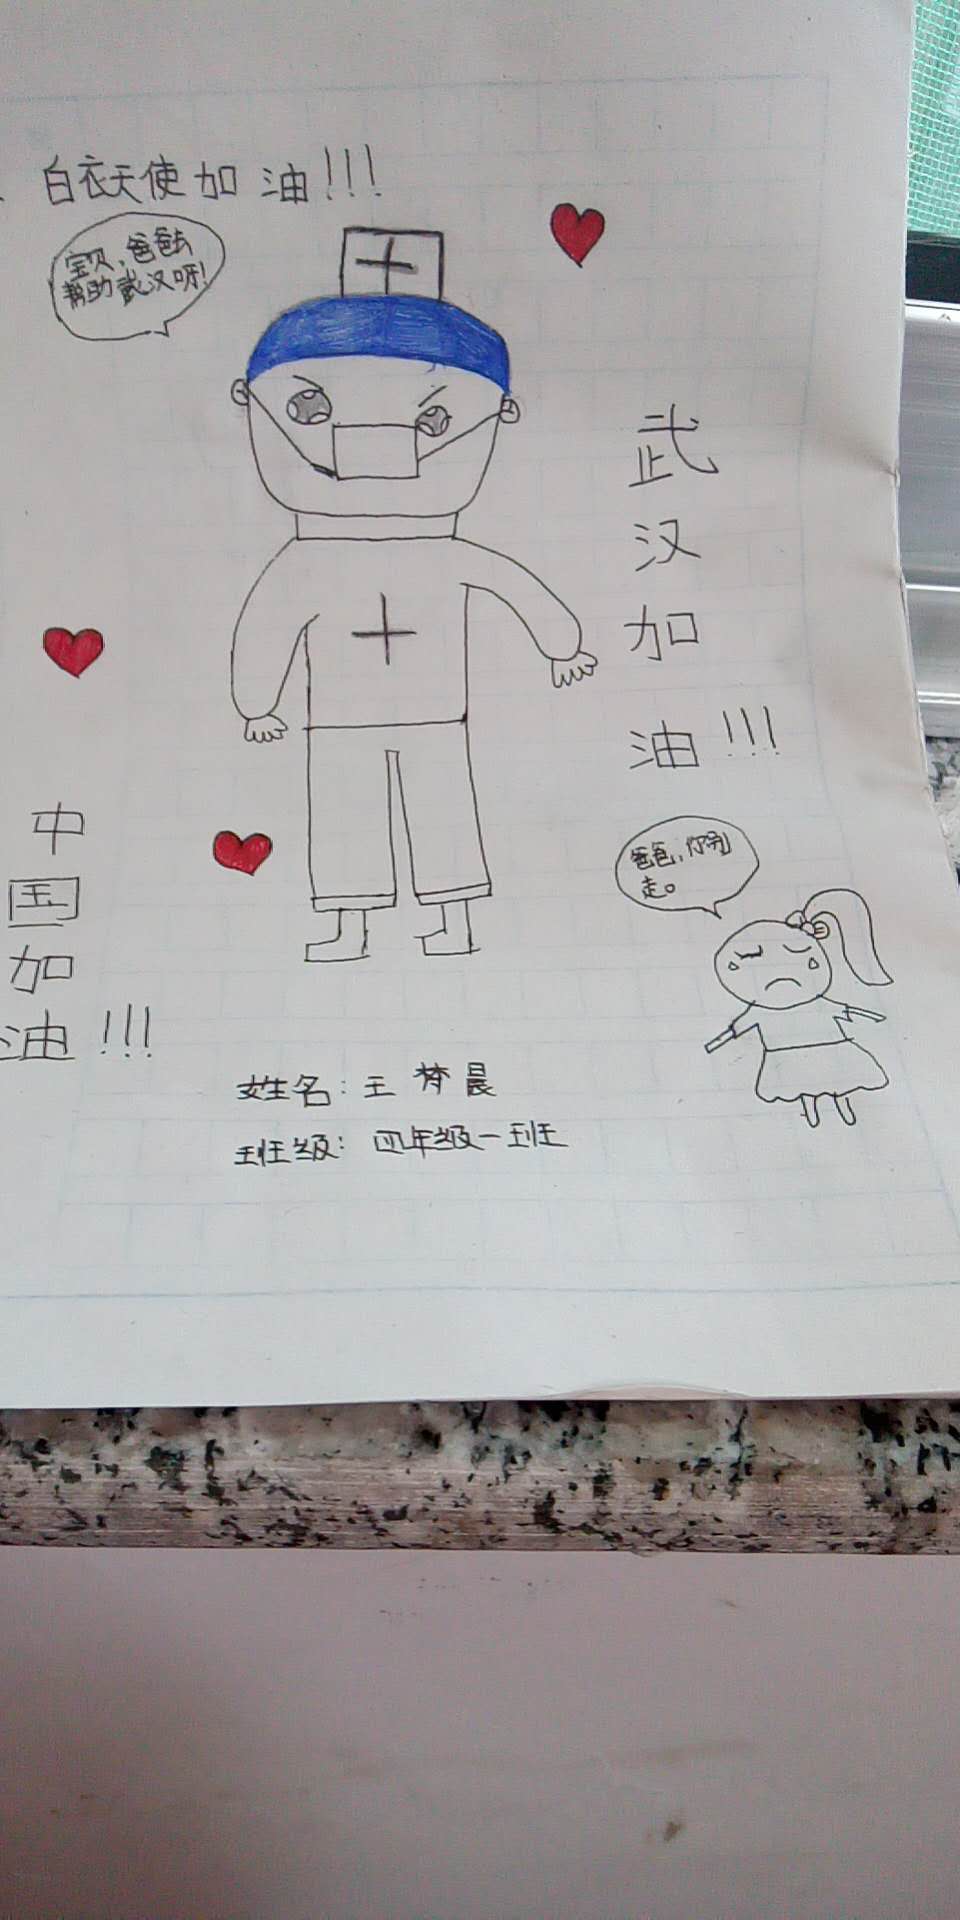 白衣天使加油!!!
宝贝,爸爸去
帮助武汉呀!
武
汉
加
油!!!
中
国
加
油!!!
爸爸,你别
走。
姓名:王梦晨
班级:四年级一班